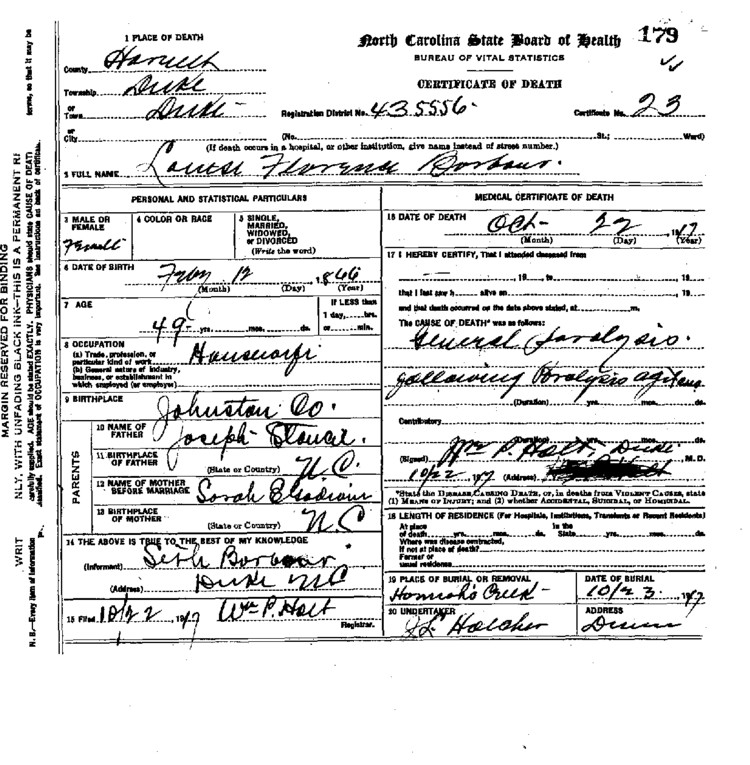 1 PLACE OF DEATH
County Harnett
Township Duke
or
Town Duke
or
City
North Carolina State Board of Health 179
BUREAU OF VITAL STATISTICS
CERTIFICATE OF DEATH
Registration District No. 435556- Certificate No. 23
(No. St.; Ward)
(If death occurs in a hospital, or other institution, give name instead of street number.)
2 FULL NAME Louise Florence Barbour.
PERSONAL AND STATISTICAL PARTICULARS
3 MALE OR FEMALE
Female
4 COLOR OR RACE
5 SINGLE,
MARRIED,
WIDOWED,
or DIVORCED
(Write the word)
6 DATE OF BIRTH
12 1866
(Month) (Day) (Year)
7 AGE
49 yrs. mos. ds.
IF LESS than
1 day, hrs.
or min.
8 OCCUPATION
(a) Trade, profession, or
particular kind of work
(b) General nature of industry,
business, or establishment in
which employed (or employer)
Housewife
9 BIRTHPLACE
Johnston Co.
PARENTS
10 NAME OF
FATHER
Joseph
11 BIRTHPLACE
OF FATHER
(State or Country) N.C.
12 NAME OF MOTHER
BEFORE MARRIAGE Sarah
13 BIRTHPLACE
OF MOTHER
(State or Country) N C
14 THE ABOVE IS TRUE TO THE BEST OF MY KNOWLEDGE
(Informant) Seth Barbour
(Address) Duke NC
15 Filed 10/22, 1917 Wm P. Holt
Registrar.
MEDICAL CERTIFICATE OF DEATH
16 DATE OF DEATH
Oct- 22 1917
(Month) (Day) (Year)
17 I HEREBY CERTIFY, That I attended deceased from
19 to 19
that I last saw h alive on , 19
and that death occurred on the date above stated, at m.
The CAUSE OF DEATH* was as follows:
General Paralysis.
following Paralysis agitans
(Duration) yrs. mos. ds.
Contributory
(Duration) yrs. mos. ds.
(Signed) Wm P. Holt, Duke, M.D.
10/22 1917 (Address)
*State the DISEASE CAUSING DEATH, or, in deaths from VIOLENT CAUSES, state
(1) MEANS OF INJURY; and (2) whether ACCIDENTAL, SUICIDAL, or HOMICIDAL.
18 LENGTH OF RESIDENCE (For Hospitals, Institutions, Transients or Recent Residents)
At place In the
of death yrs. mos. ds. State yrs. mos. ds.
Where was disease contracted,
if not at place of death?
Former or
usual residence
19 PLACE OF BURIAL OR REMOVAL
Creek -
DATE OF BURIAL
10/23. 1917
20 UNDERTAKER
ADDRESS
Dunn
MARGIN RESERVED FOR BINDING
WRIT NLY, WITH UNFADING BLACK INK—THIS IS A PERMANENT RE
N. B.—Every item of information carefully supplied. AGE should be stated EXACTLY. PHYSICIANS should state CAUSE OF DEATH terms, so that it may be
classified. Exact statement of OCCUPATION is very important. See instructions on back of certificate.